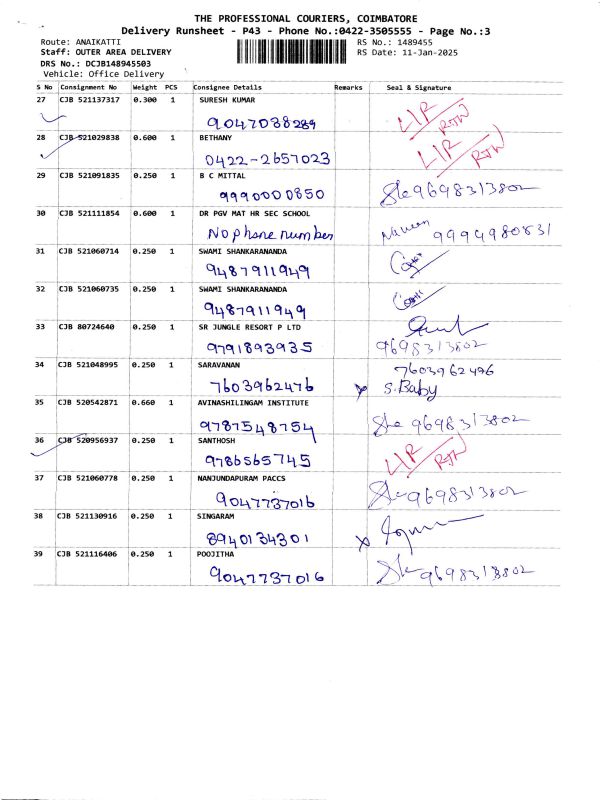 THE PROFESSIONAL COURIERS, COIMBATORE
Delivery Runsheet - P43 - Phone No.:0422-3505555 - Page No.:3
Route: ANAIKATTI RS No.: 1489455
Staff: OUTER AREA DELIVERY RS Date: 11-Jan-2025
DRS No.: DCJB148945503
Vehicle: Office Delivery
S No Consignment No Weight PCS Consignee Details Remarks Seal & Signature
27 CJB 521137317 0.300 1 SURESH KUMAR
9047088289 RTN
28 CJB 521029838 0.600 1 BETHANY
0422-2657023 RTN
29 CJB 521091835 0.250 1 B C MITTAL
9990000850 9698313802
30 CJB 521111854 0.600 1 DR PGV MAT HR SEC SCHOOL
No phone number Naveen 9994980831
31 CJB 521060714 0.250 1 SWAMI SHANKARANANDA
9487911949
32 CJB 521060735 0.250 1 SWAMI SHANKARANANDA
9487911949
33 CJB 80724640 0.250 1 SR JUNGLE RESORT P LTD
9791893935 9698313802
34 CJB 521048995 0.250 1 SARAVANAN 7603962496
7603962476 S. Baby
35 CJB 520542871 0.660 1 AVINASHILINGAM INSTITUTE
9787548754 9698313802
36 CJB 520956937 0.250 1 SANTHOSH
9786565745 RTN
37 CJB 521060778 0.250 1 NANJUNDAPURAM PACCS
9047737016 9698313802
38 CJB 521130916 0.250 1 SINGARAM
8940134301
39 CJB 521116406 0.250 1 POOJITHA
9047737016 9698313802